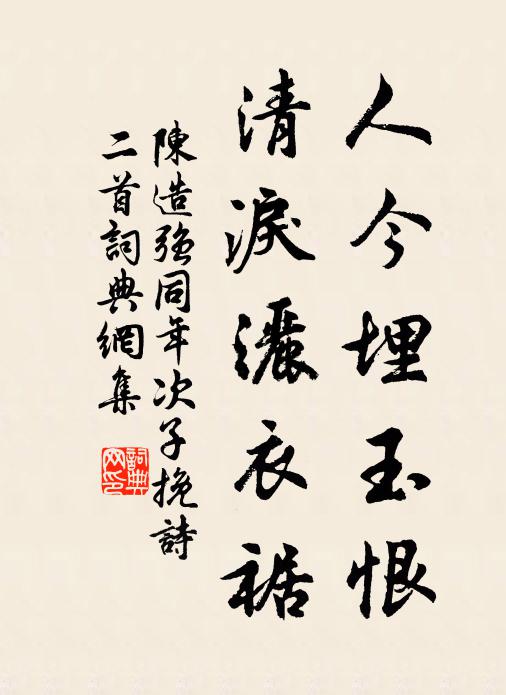 人今埋玉恨
清淚灑衣裾
陳造強同年次子挽詩
二首詞典網集
詞典
网印